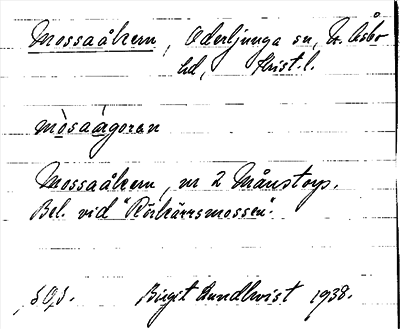 Mossaåkern, Oderljunga sn, N. Åsbo
hd, Krist. l.
mòsaágoran
Mossaåkern, nr 2 Månstorp.
Bel. vid "Rörkärrsmossen".
Birgit Rundkvist 1938.